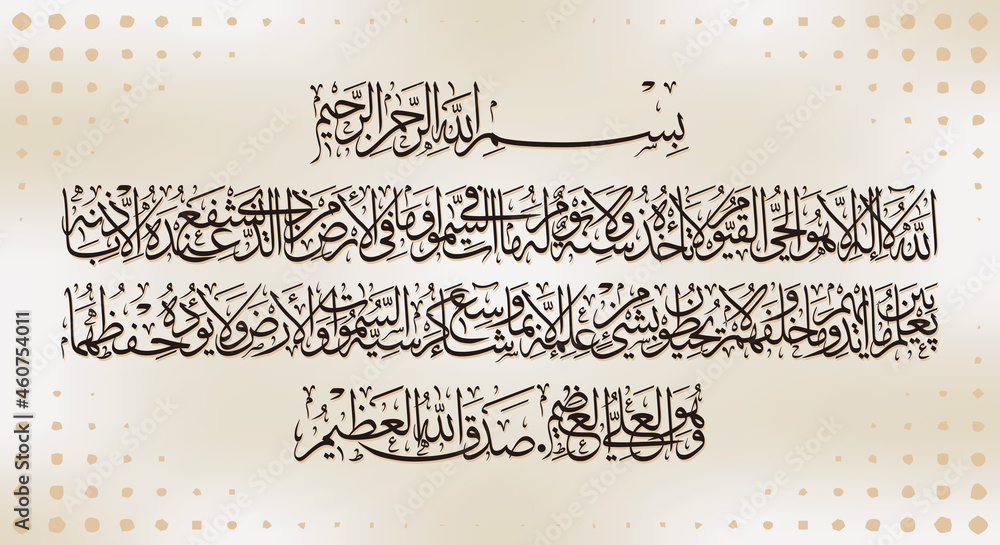 بِسْمِ اللَّهِ الرَّحْمَٰنِ الرَّحِيمِ
اللَّهُ لَا إِلَٰهَ إِلَّا هُوَ الْحَيُّ الْقَيُّومُ لَا تَأْخُذُهُ سِنَةٌ وَلَا نَوْمٌ لَهُ مَا فِي السَّمَاوَاتِ وَمَا فِي الْأَرْضِ مَنْ ذَا الَّذِي يَشْفَعُ عِنْدَهُ إِلَّا بِإِذْنِهِ
يَعْلَمُ مَا بَيْنَ أَيْدِيهِمْ وَمَا خَلْفَهُمْ وَلَا يُحِيطُونَ بِشَيْءٍ مِنْ عِلْمِهِ إِلَّا بِمَا شَاءَ وَسِعَ كُرْسِيُّهُ السَّمَاوَاتِ وَالْأَرْضَ وَلَا يَئُودُهُ حِفْظُهُمَا
وَهُوَ الْعَلِيُّ الْعَظِيمُ. صَدَقَ اللَّهُ الْعَظِيمُ
Adobe Stock | #460754011